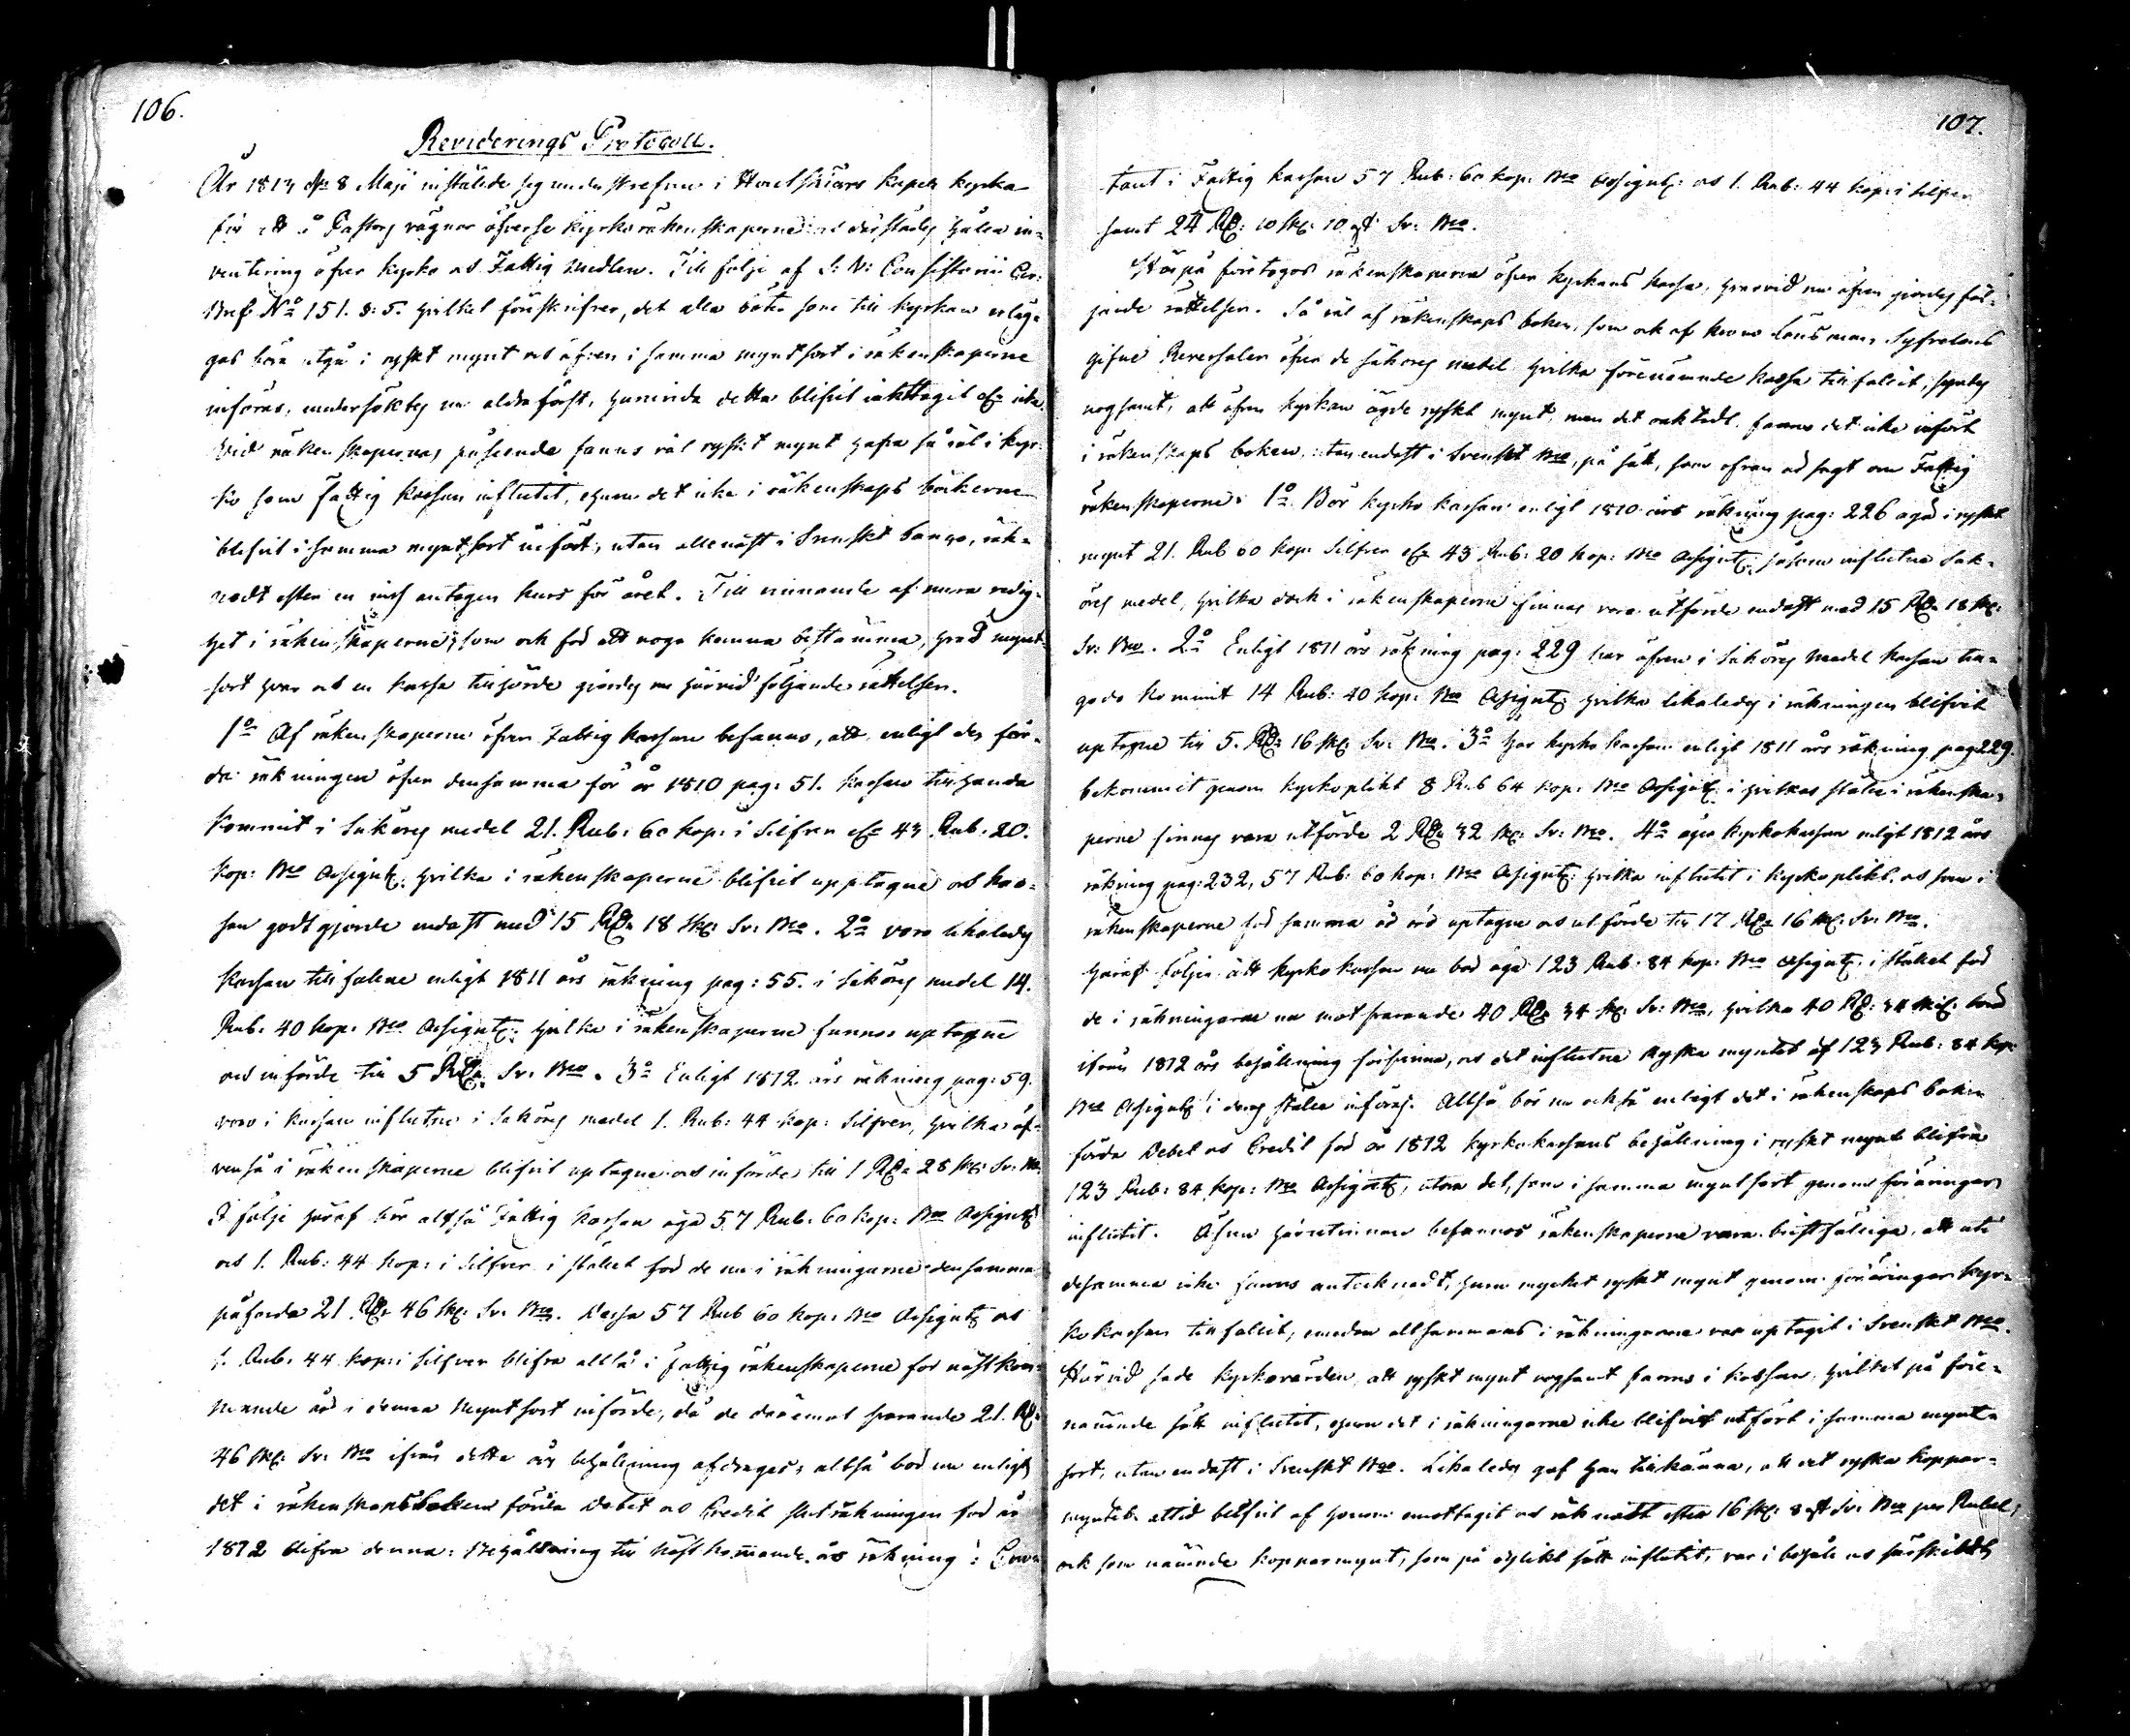 106.
Reviderings Protocoll.
År 1813 d. 8 Maji instälde sig undertecknad i Houtskärs Kapell kyrka
för att å Pastors vägnar öfverse kyrkoräkenskaperne och därstädes hålla in-
ventering öfver kyrko och Fattig Medlen. Till följe af S: V: Consistorii Cir:
Bref No 151. §: 5. hvilket föreskrifver, det alla böter som till kyrkan erläg-
gas böra utgå i ryskt mynt och äfven i samma myntsort i räkenskaperne
införas, undersöktes nu aldraförst, huruvida detta blifvit iakttagit eller icke.
Vid räkenskapernas påseende fanns väl ryskt mynt hafva så väl i kyr-
ko som Fattig kassan influtit, ehuru det icke i räkenskaps böckerne
blifvit i samma myntsort infört, utan allenast i Svenskt banco, räk-
nadt efter en viss antagen kurs för året. Till vinnande af mera redig-
het i räkenskaperne, som ock för att noga kunna bestämma, hvad mynt-
sort hvar och en kassa tillhörde gjordes nu härvid följande rättelser.
1o Af räkenskaperne öfver Fattig kassan befanns, att enligt den för-
da räkningen öfver densamma för år 1810 pag: 51. kassan tillhanda
kommit i Saköres medel 21. Rub: 60 kop: i Silfver eller 43 Rub: 20.
kop: Bco Assignt: hvilka i räkenskaperne blifvit upptagne och kas-
san godtgjorde endast med 15 Rd. 18 sk: Sv: Bco. 2o voro likaledes
kassan tillfallne enligt 1811 års räkning pag: 55. i Saköres medel 14.
Rub: 40 kop: Bco Assignt: hvilka i räkenskaperne funnos uptagne
och införde till 5 Rd. Sv: Bco. 3o Enligt 1812 års räkning pag: 59.
voro i kassan influtne i Saköres medel 1. Rub: 44 kop: Silfver, hvilka äf-
venså i räkenskaperne blifvit uptagne och införde till 1 Rd. 28 sk: Sv: Bco.
I följe häraf bör altså Fattig kassan äga 57 Rub: 60 kop: Bco Assignt:
och 1. Rub: 44 kop: i Silfver i stället för de nu i räkningarne densamma
påförda 21. Rd. 46 sk: Sv: Bco. Dessa 57 Rub 60 kop: Bco Assignt: och
1. Rub: 44 kop: i Silfver blifva altså i Fattig räkenskaperne för nästkom-
mande år i denna Myntsort införde, då de däremot svarande 21. Rd.
46 sk: Sv: Bco ifrån detta års behållning afdrages; altså bör nu enligt
det i räkenskapsboken förda Debet och Credit slut räkningen för år
1812 blifva denna: Behållning till nästkommande års räkning:
107.
tant i Fattig kassan 57 Rub: 60 kop: Bco Assignt: och 1. Rub: 44 kop: i Silfver
samt 24 Rd: 10 sk: 10 rst: Sv: Bco.
Härpå företogos räkenskaperna öfver kyrkans kassa, hvarvid nu äfven gjordes föl-
jande rättelser. Så väl af räkenskaps boken, som ock af krono Länsman
gifne Reversaler öfver de Saköres medel hvilka förenämnde kassa tillfallit, syntes
nogsamt, att äfven kyrkan ägde ryskt mynt, men det oaktadt fanns det icke infört
i räkenskaps boken, utan endast i Svenskt Bco, på sätt, som ofvan är sagt om Fattig
räkenskaperne. 1o Bör kyrko kassan enligt 1810 års räkning pag: 226 äga i ryskt
mynt 21. Rub 60 kop: Silfver eller 43 Rub: 20 kop: Bco Assignt: såsom influtne Sak-
öres medel, hvilka dock i räkenskaperne finnas vara utförde endast med 15 Rd. 18 sk:
Sv: Bco. 2o Enligt 1811 års räkning pag: 229 har äfven i Saköres Medel kassan till-
godo kommit 14 Rub: 40 kop: Bco Assignt: hvilka likaledes i räkningen blifvit
uptagne till 5. Rd: 16 sk: Sv: Bco. 3o har kyrko kassan enligt 1811 års räkning pag 229.
bekommit genom kyrkoplikt 8 Rub 64 kop: Bco Assignt: i hvilkas ställe i räkenska-
perne finnas vara utförde 2 Rd. 32 sk: Sv: Bco. 4o äger kyrkokassan enligt 1812 års
räkning pag: 232, 57 Rub: 60 kop: Bco Assignt: hvilka influtit i kyrkoplikt, och som i
räkenskaperne för samma år äro uptagne och utförde till 17 Rd. 16 sk: Sv: Bco.
Häraf följer att kyrko kassan nu bör äga 123 Rub: 84 kop: Bco Assignt: i stället för
de i räkningarne nu motsvarande 40 Rd. 34 sk: Sv: Bco, hvilka 40 Rd: 34 sk: böra
ifrån 1812 års behållning försvinna, och det influtne Ryska myntet af 123 Rub: 84 kop:
Bco Assignt: i deras ställe införas. Altså bör nu också enligt det i räkenskaps boken
förda Debet och Credit för år 1812 kyrkokassans behållning i ryskt mynt blifva
123 Rub: 84 kop: Bco Assignt:, utom det, som i samma myntsort genom föräringar
influtit. Äfven härutinnan befunnos räkenskaperne vara bristfällige, att uti
desamma icke fanns antecknadt, huru mycket ryskt mynt genom föräringar kyr-
kokassan tillfallit, medan altsammans i räkningarne var uptagit i Svenskt Bco.
Härvid sade kyrkovärden, att ryskt mynt nogsamt fanns i kassan, hvilket på före-
nämnde sätt influtit, ehuru det i räkningarne icke blifvit utfört i samma mynt-
sort, utan endast i Svenskt Bco. Likaledes gaf han tillkänna, att det ryska koppar-
myntet alltid blifvit af honom emottagit och räknadt efter 16 sk: 8 rst Sv: Bco per Rubel,
ock som nämnde kopparmynt, som på dylikt sätt influtit, var i behåll och särskildt